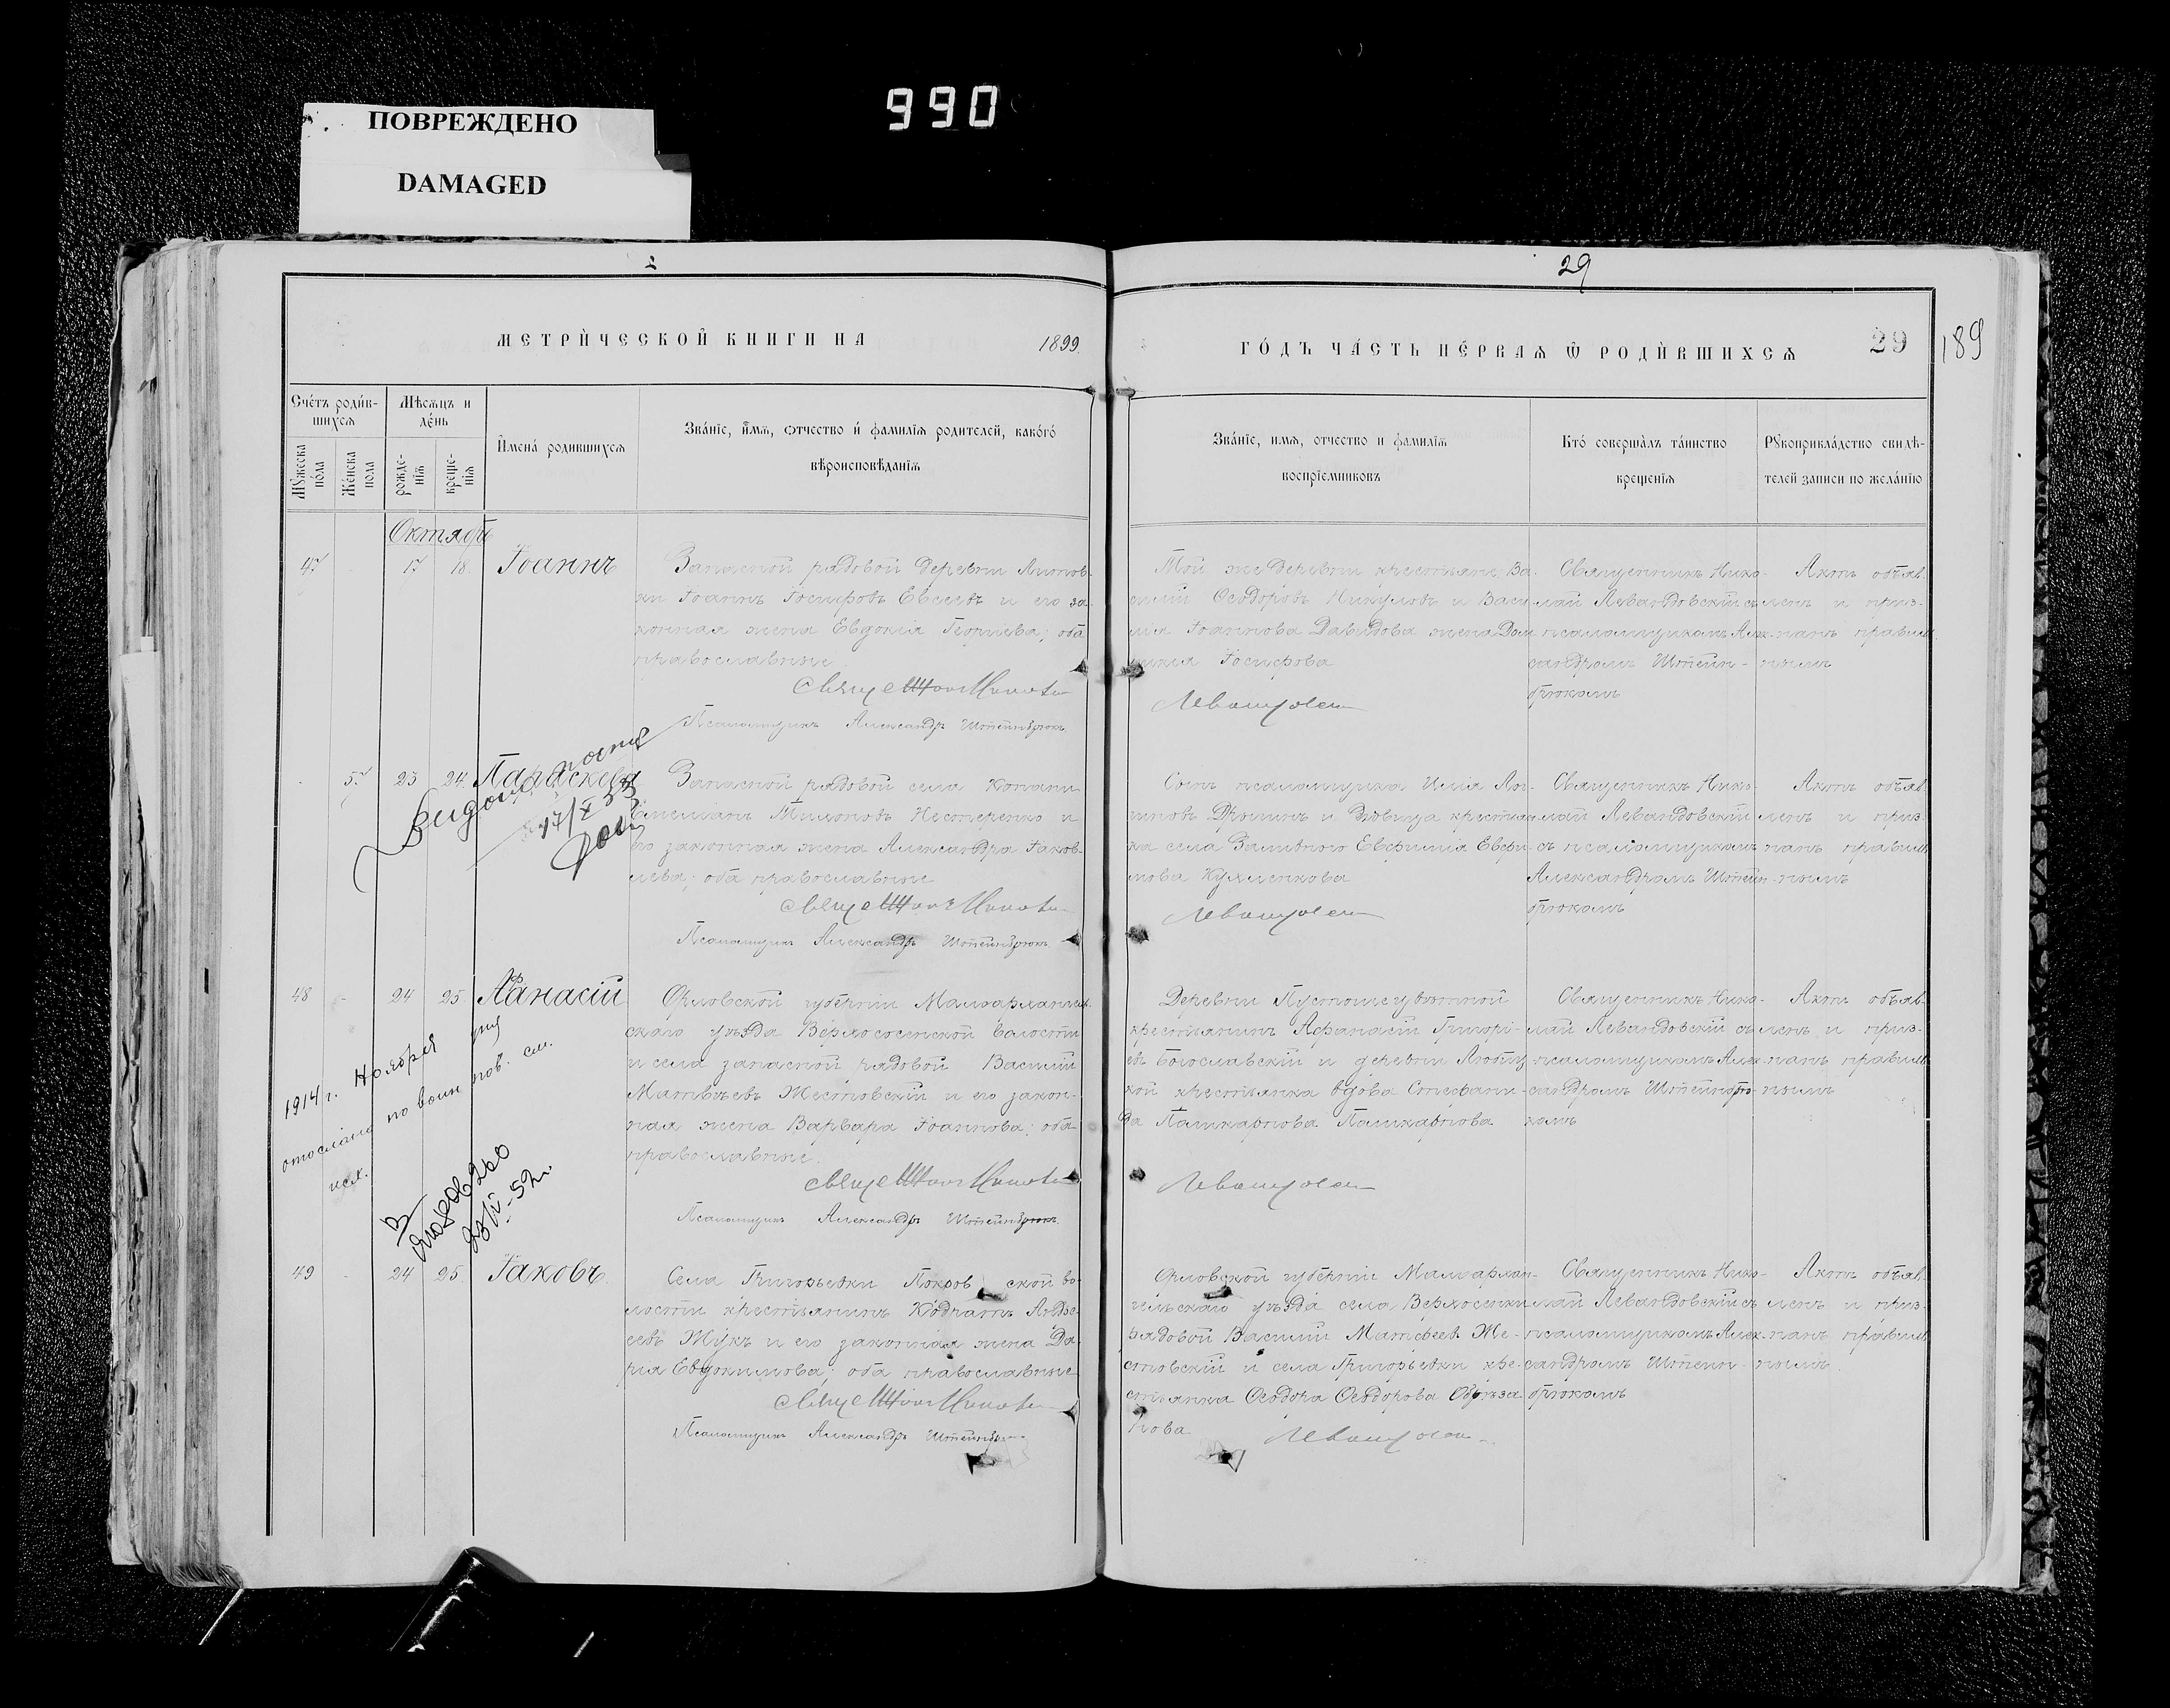 990
ПОВРЕЖДЕНО
DAMAGED
29
МЕТРИ́ЧЕСКОЙ КНИГИ НА 1899.
ГО́ДЪ ЧА́СТЬ ПЕ́РВАѦ Ѿ РОДИ́ВШИХСѦ 29
189
Счéтъ роди́в-
шихсѧ
Мѣсѧцъ и
де́нь
Мꙋжеска
по́ла
Же́нска
пола
рожде-
нїѧ
креще-
нїѧ
И҆мена́ родившихсѧ
Зва́нїе, и҆мѧ, ѻтчество и҆ фамилїѧ родителей, како́гѡ
вѣроисповѣданїѧ
Зва́нїе, имѧ, отчество и фамилїѧ
воспрїемниковъ
Кто́ соверша́лъ та́инство
крещенїѧ
Рꙋкоприкла́дство свидѣ-
телей записи по жела́нїю
Октябрь
47 - 17 18. Іоаннъ
Запасной рядовой деревни Литов-
ки Іоаннъ Іосифовъ Евсеевъ и его за-
конная жена Евдокія Георгіева; оба
православные
Псаломщикъ Александръ Штейнбрюкъ
Той же деревни крестьяне: Ва-
силій Ѳеодоровъ Никуловъ и Васи-
лія Іоаннова Давидова жена Дом
никія Іосифова
Священникъ Нико-
лай Левандовскій съ
псаломщикомъ Алек-
сандромъ Штейн-
брюкомъ
Актъ объяв-
ленъ и приз-
нанъ правиль
нымъ
- 57 23 24. Параскева
17/X 33
Запасной рядовой села Копани
Емеліанъ Тихоновъ Нестеренко и
его законная жена Александра Іаков-
лева; оба православные
Псаломщикъ Александръ Штейнбрюкъ
Сынъ псаломщика Илія Лог-
гиновъ и вдовица крестьян-
ка села Заливного Евфимія Евфи-
мова Кухленкова
Священникъ Нико-
лай Левандовскій
съ псаломщикомъ
Александромъ Штейн-
брюкомъ
Актъ объяв-
ленъ и приз-
нанъ правиль
нымъ
48 - 24 25 Аѳанасій
1914 г. Ноября дня
отослано по воин пов. см.
исх.
23/IV-52г.
Орловской губерніи Малоархангель-
скаго уѣзда Верхососенской волости
и села запасной рядовой Василій
Матвѣевъ Жестовскій и его закон-
ная жена Варвара Іоаннова; оба
православные.
Псаломщикъ Александръ Штейнбрюкъ.
крестьянинъ Аѳанасій Григорі-
евъ Богославскій и деревни Любиц-
кой крестьянка вдова Стефани-
да Пашкарнова Пашкарнова
Священникъ Нико-
лай Левандовскій съ
псаломщикомъ Алек-
сандромъ Штейнбрю-
комъ
Актъ объяв-
ленъ и приз-
нанъ правиль
нымъ
49 - 24 25. Іаковъ.
Села Григорьевки Покров ской во-
лости крестьянинъ Кодратъ Авдѣ-
евъ Жукъ и его законная жена Да-
рія Евдокимова; оба православные
Псаломщикъ Александръ
Орловской губерніи Малоархан-
гельскаго уѣзда села Верхососенки
рядовой Василій Матѳеевъ Же-
стовскій и села Григорьевки кре-
стьянка Ѳеодора Ѳеодорова
Священникъ Нико-
лай Левандовскій съ
псаломщикомъ Алек-
сандромъ Штейн-
брюкомъ
Актъ объяв-
ленъ и приз-
нанъ правиль
нымъ.